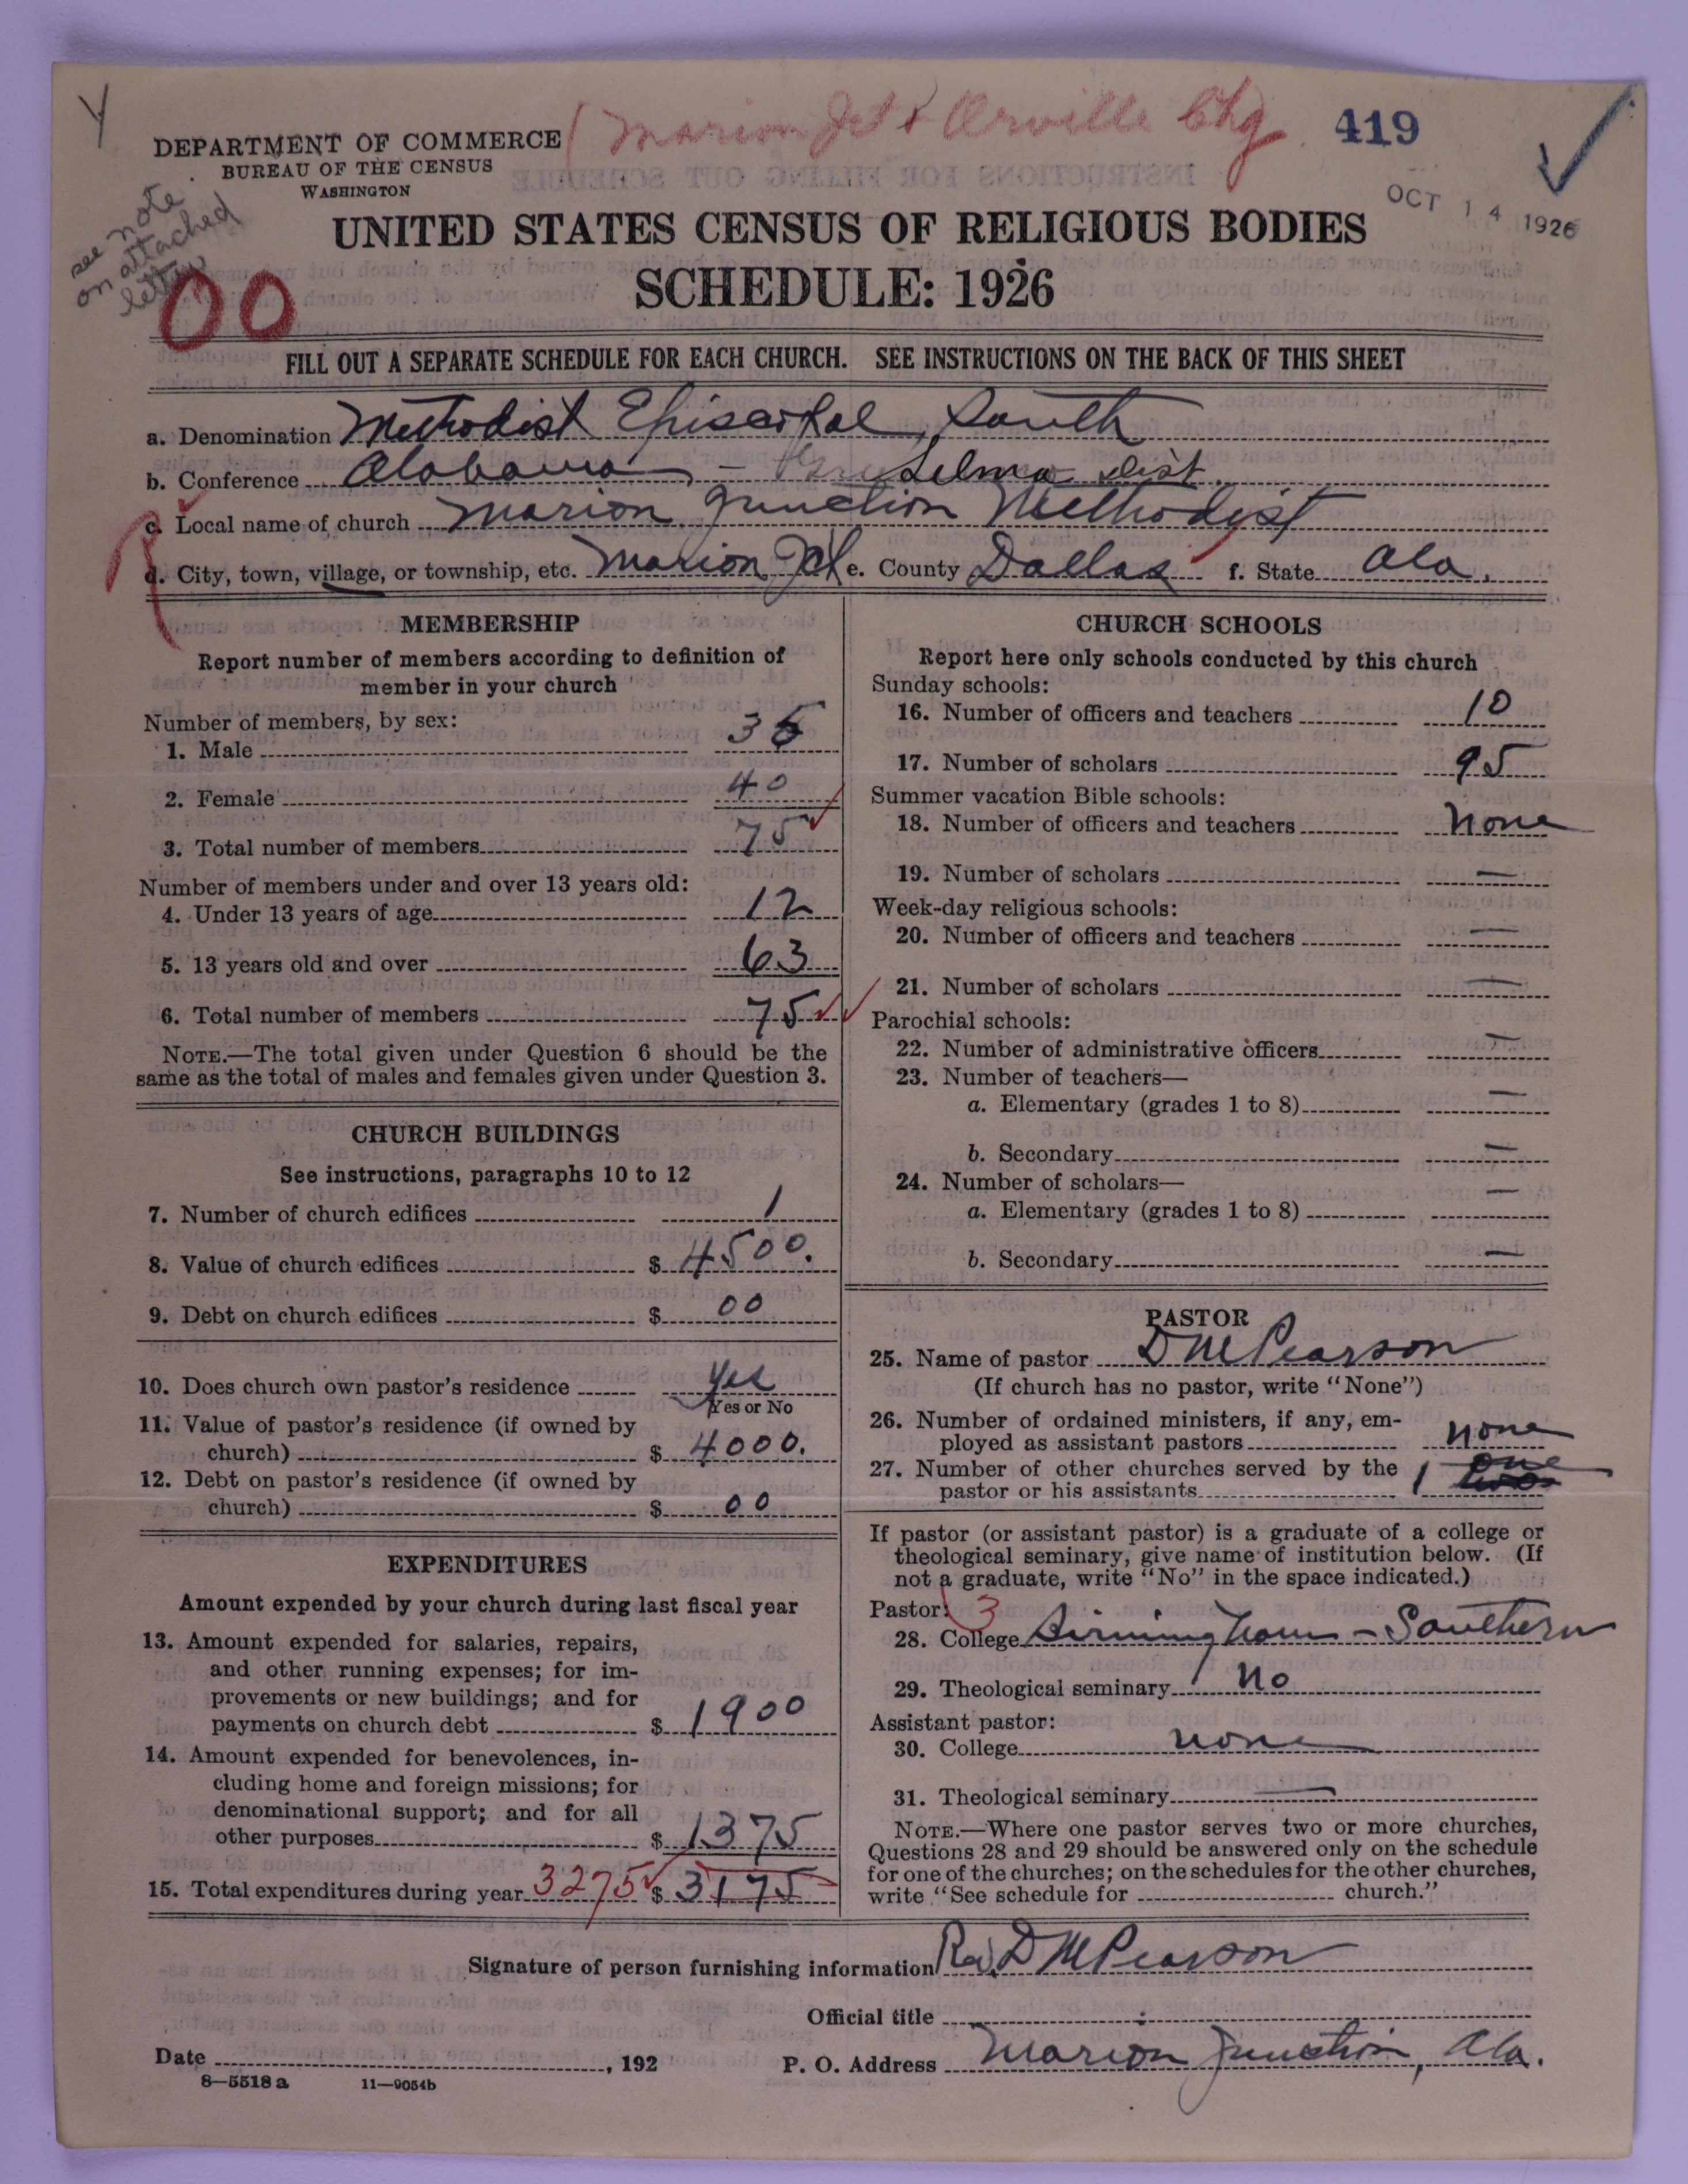 Y
( Marion Jct & Orville Chg. 419
DEPARTMENT OF COMMERCE
BUREAU OF THE CENSUS
WASHINGTON
OCT 14 1926
see note
on attached
letter
UNITED STATES CENSUS OF RELIGIOUS BODIES
SCHEDULE: 1926
00
FILL OUT A SEPARATE SCHEDULE FOR EACH CHURCH. SEE INSTRUCTIONS ON THE BACK OF THIS SHEET
a. Denomination Methodist Episcopal, South
b. Conference Alabama, - Selma Dist.
c. Local name of church Marion Junction Methodist
d. City, town, village, or township, etc. Marion Jct e. County Dallas f. State Ala.
MEMBERSHIP
Report number of members according to definition of
member in your church
Number of members, by sex:
1. Male 35
2. Female 40
3. Total number of members 75
Number of members under and over 13 years old:
4. Under 13 years of age 12
5. 13 years old and over 63
6. Total number of members 75
NOTE.—The total given under Question 6 should be the
same as the total of males and females given under Question 3.
CHURCH BUILDINGS
See instructions, paragraphs 10 to 12
7. Number of church edifices 1
8. Value of church edifices $ 4500.
9. Debt on church edifices $ 00
10. Does church own pastor's residence Yes
Yes or No
11. Value of pastor's residence (if owned by
church) $ 4000.
12. Debt on pastor's residence (if owned by
church) $ 00
EXPENDITURES
Amount expended by your church during last fiscal year
13. Amount expended for salaries, repairs,
and other running expenses; for im-
provements or new buildings; and for
payments on church debt $ 1900
14. Amount expended for benevolences, in-
cluding home and foreign missions; for
denominational support; and for all
other purposes $ 1375
15. Total expenditures during year 3275 $ 3175
CHURCH SCHOOLS
Report here only schools conducted by this church
Sunday schools:
16. Number of officers and teachers 10
17. Number of scholars 95
Summer vacation Bible schools:
18. Number of officers and teachers None
19. Number of scholars —
Week-day religious schools:
20. Number of officers and teachers —
21. Number of scholars —
Parochial schools:
22. Number of administrative officers —
23. Number of teachers—
a. Elementary (grades 1 to 8) —
b. Secondary —
24. Number of scholars—
a. Elementary (grades 1 to 8) —
b. Secondary —
PASTOR
25. Name of pastor D M Pearson
(If church has no pastor, write "None")
26. Number of ordained ministers, if any, em-
ployed as assistant pastors none
27. Number of other churches served by the
pastor or his assistants 1 one
If pastor (or assistant pastor) is a graduate of a college or
theological seminary, give name of institution below. (If
not a graduate, write "No" in the space indicated.)
Pastor: 3
28. College Birmingham - Southern
29. Theological seminary No
Assistant pastor:
30. College none
31. Theological seminary —
NOTE.—Where one pastor serves two or more churches,
Questions 28 and 29 should be answered only on the schedule
for one of the churches; on the schedules for the other churches,
write "See schedule for church."
Signature of person furnishing information Rev. D M Pearson
Official title
Date , 192
P. O. Address Marion Junction, Ala.
8—5518 a 11—9054b